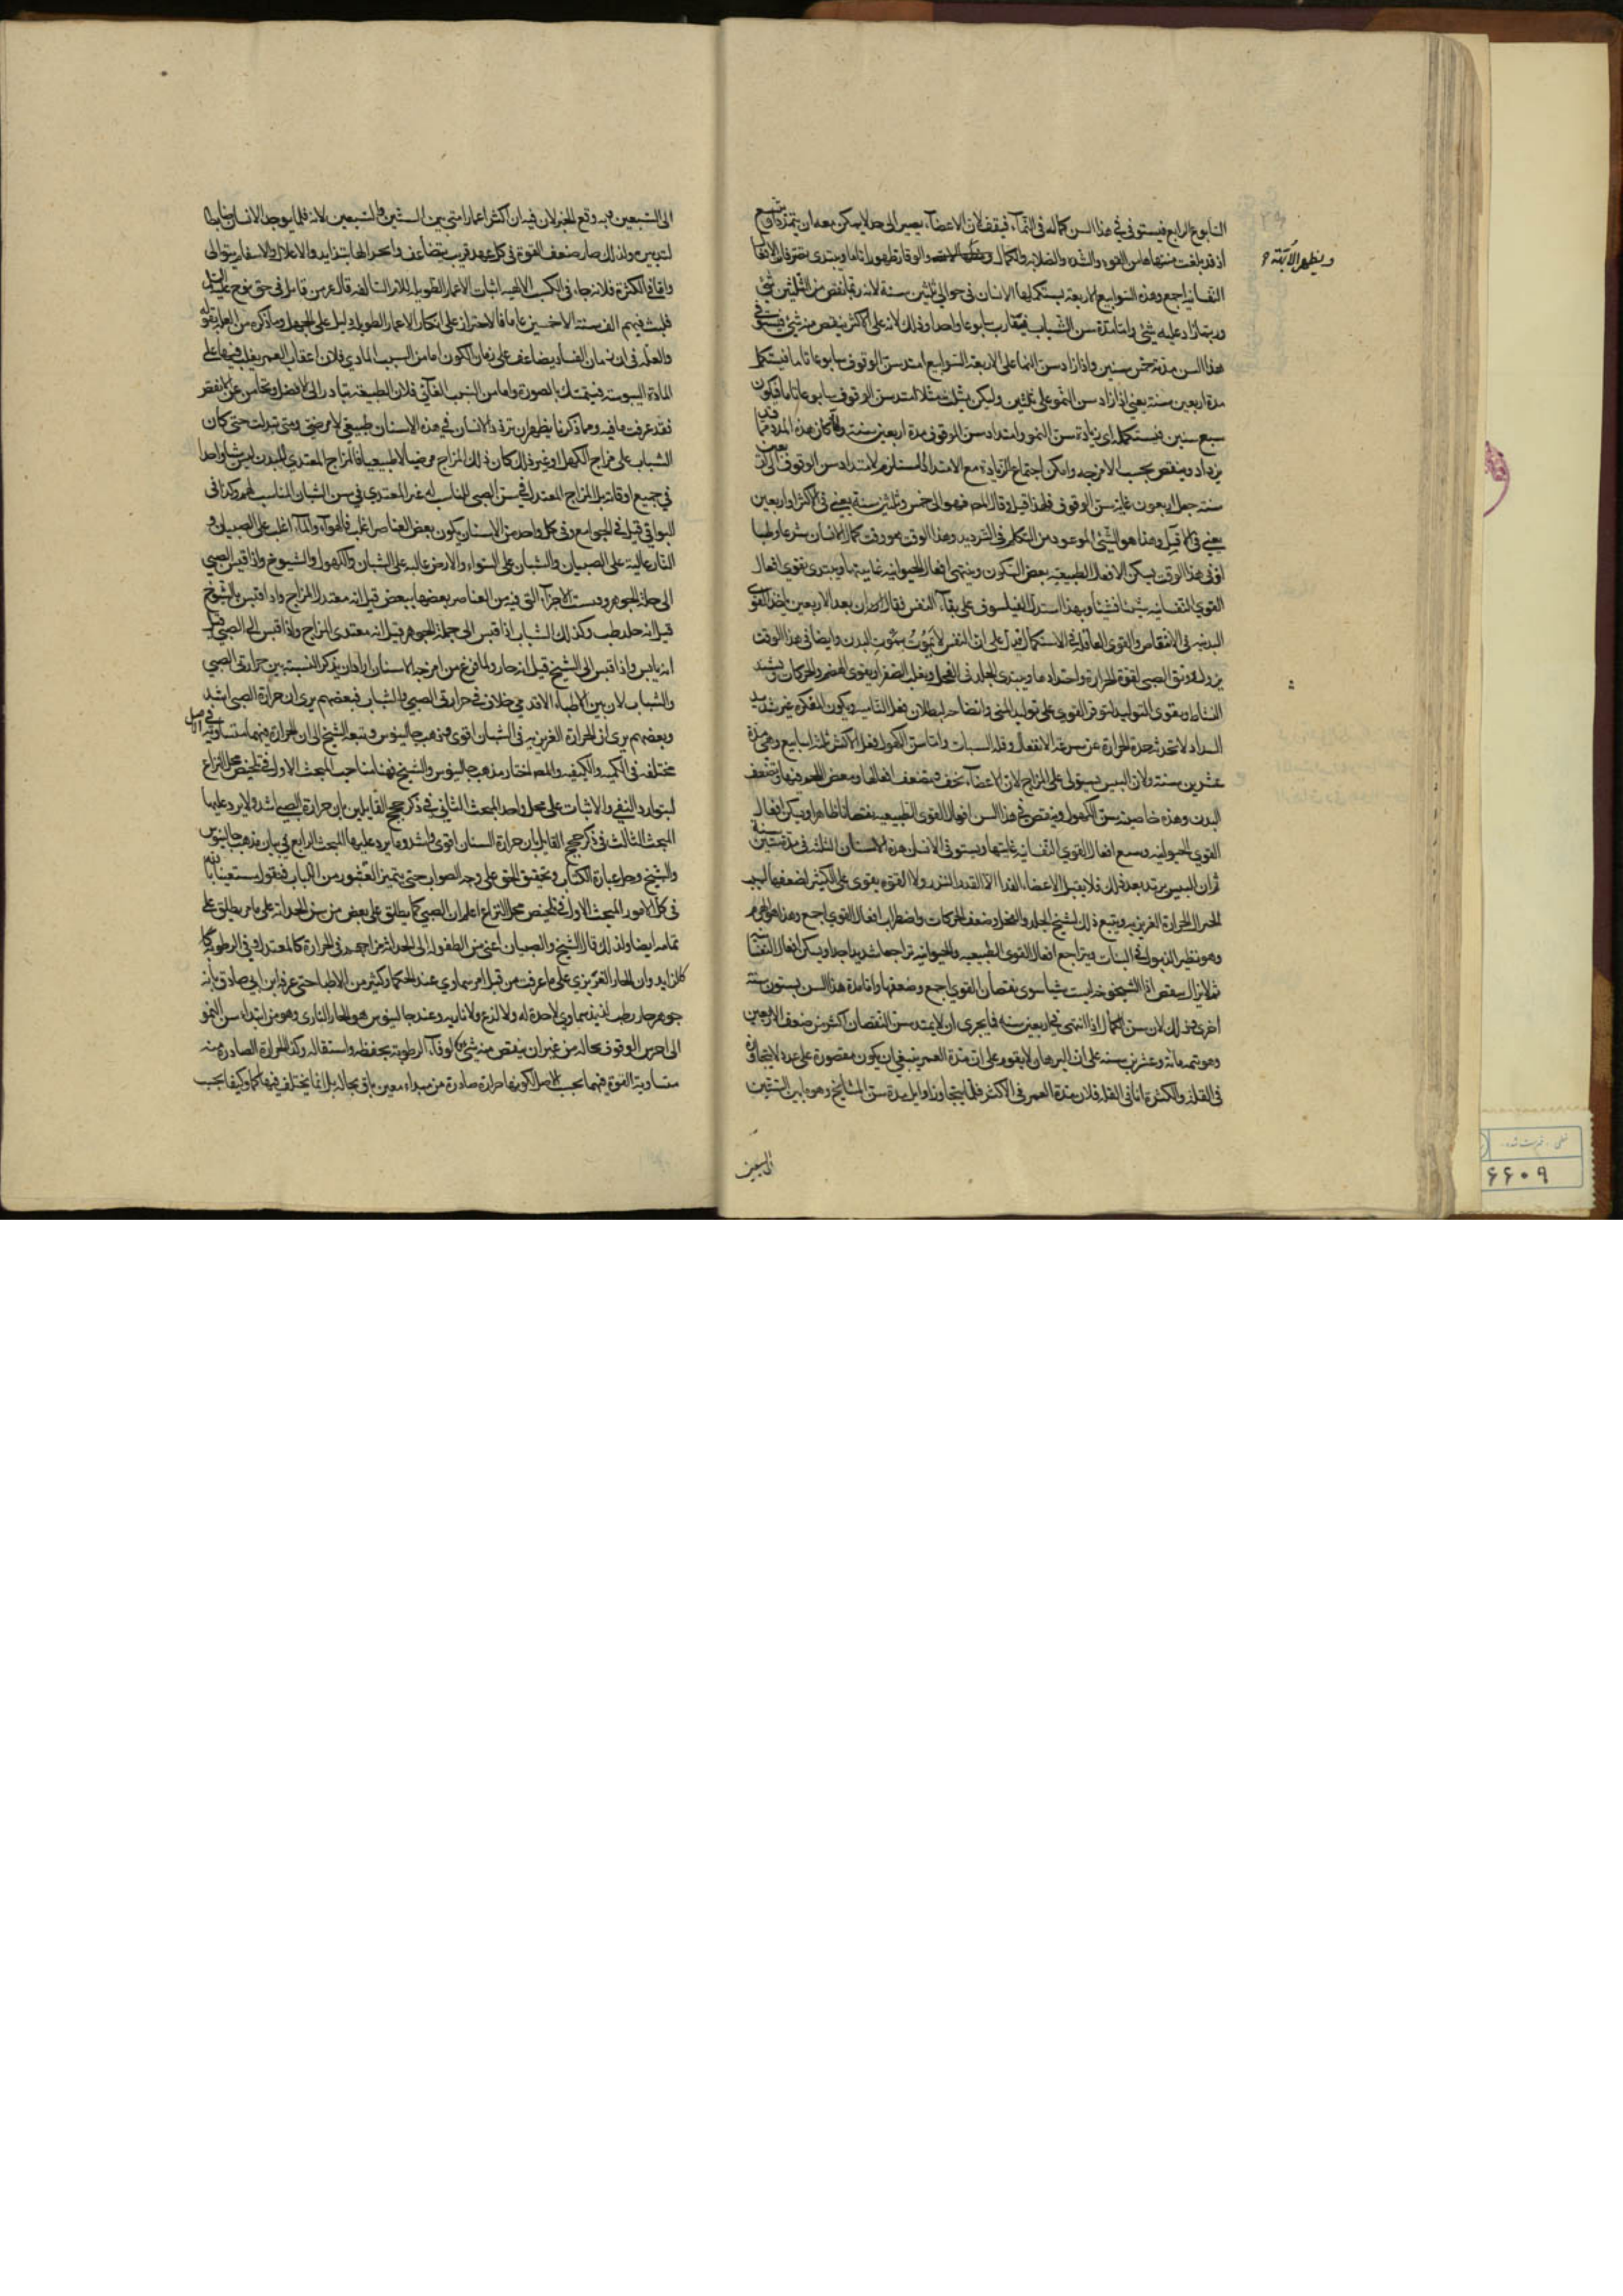 السابوع الرابع فيستوفي في هذا السن كماله في النماء فيقف لان الاعضاء يصير الى حد لا يمكن معه ان يتمدد
اذ قد بلغت منتهاها من القوة والشدة والصلابة والكمال والوقار ظهورا تاما ويبتدى
النفسانية اجمع وهذه السوابيع الاربعة يستكملها الانسان في حوالى ثلثين سنة لانه ربما نقص من الثلثين شئ
وربما زاد عليه شئ واما مدة سن الشباب فيقارب سابوعا واحدا وذلك لانه على الاكثر ينقص منه شئ
هذا السن مدته خمس سنين واذا زاد سن النماء على الاربعة السوابيع امتد سن الوقوف سابوعا تاما فيستكمل
مدة اربعين سنة يعنى اذا زاد سن النمو على ثلثين وليكن بثلث مثلا امتد سن الوقوف سابوعا تاما فيكون
سبع سنين فيستكمل اى بزيادة سن النمو وامتداد سن الوقوف مدة اربعين سنة ولما كان هذه المدة مما
يزداد وينقص بحسب الامزجة وامكن اجتماع الزيادة مع الامتداد المستلزم لامتداد سن الوقوف الى
سنة جعل اربعون غاية سن الوقوف فلهذا قيل وقال المص فهو الى خمس وثلثين سنة يعنى في الاكثر او اربعين
يعنى في الاقل وهذا هو الشئ الموعود من التكلم في الترديد وهذا الوقت هو وقت كمال الانسان شرعا وطبا
اذ في هذا الوقت يسكن الافعال الطبيعية بعض السكون وينتهى افعال الحيوانية غايتها ويبتدى تقوى افعال
القوى النفسانية شيئا فشيئا وبهذا استدل الفيلسوف على بقاء النفس فقال ان بعد الاربعين ياخذ القوى
البدنية في الانتقاص والقوى العاقلة في الاستكمال فدل على ان النفس لا تموت بموت البدن وايضا في هذا الوقت
يزول رونق الصبى لقوة الحرارة واحتدادها ويبتدى الجلد في القحل ويغلب الصفراء ويقوى الهضم والحركات ويشتد
النشاط ويقوى التوليد لتوفر القوى على توليد المنى
السداد لا تحدث حدة الحرارة عن سرعة الانفعال وقلة السبات واما سن الكهول فعلى الاكثر ثلثة اسابيع وهى مدة
عشرين سنة ولان اليبس يستولى على المزاج لان الاعضاء تجف فيضعف افعالها
البدن وهذه خاصية سن الكهول وينتقص في هذا السن افعال القوى الطبيعية نقصانا ظاهرا ويسكن افعال
القوى الحيوانية ويسع افعال القوى النفسانية غايتها ويستوفى الانسان هذه الاسنان الثلثة في مدة ستين سنة
ثم ان اليبس يزيد بعد ذلك فلا يقبل الاعضاء الغذاء الا القدر النزر ولا القوة يقوى على الكثير لضعفها
الحرارة الغريزية ويتبع ذلك تشنج الجلد وضعف الحركات واضطراب افعال القوى اجمع وهذا هو الهرم
وهو نظير الذبول في النبات ويتراجع افعال القوى الطبيعية والحيوانية تراجعا شديدا جدا ويسكن افعال
ثم لا يزال ينقص اذ الشيخوخة ليست شيئا سوى نقصان القوى اجمع وضعفها واما مدة هذا السن يستون سنة
اخرى وذلك لان سن الكمال اذا انتهى في اربعين سنة فبالحرى ان لا يمتد سن النقصان اكثر من ضعف الاربعين
وهو تتمة مائة وعشرين سنة على ان البرهان لا يقوم على ان مدة العمر ينبغى ان يكون مقصورة على عدد لا يتجاوزه
في القلة والكثرة اما في القلة فلان مدة العمر في الاكثر قلما يتجاوز اوايل مدة سن المشايخ وهو ما بين الستين
الى السبعين
الى السبعين وبه وقع الخبر لان فيه ان اكثر اعمار امتى بين الستين والسبعين لانه قلما يوجد الانسان ضابطا
لتدبيره ولذلك صار ضعف القوة في كل عهد قريب يتضاعف
واما في الكثرة فلانه جاء في الكتب الالهية اثبات الاعمار الطويلة للامم السالفة قال عز من قائل في حق نوح عليه السلام
فلبث فيهم الف سنة الا خمسين عاما فالاحتراز على انكار الاعمار الطويلة دليل على الجهل وما ذكره من
والعلة في ان زمان الفساد يضاعف على زمان الكون اما من السبب المادي فلان اعقاب العمر يغلب فيها على
المادة اليبوسة فيتمسك بالصورة واما من السبب الفاعلى فلان الطبيعة تبادر الى الافضل وتتقاعس عن الانقص
فقد عرفت ما فيه ومما ذكرنا يظهر ان تردد الانسان في هذه الاسنان طبيعى لا عرضى ومتى تبدلت حتى كان
الشباب على مزاج الكهل او غير ذلك كان ذلك المزاج عرضيا لا طبيعيا فالمزاج المعتدل للبدن ليس شيئا واحدا
في جميع اوقاته بل المزاج المعتدل في سن الصبى المناسب له غير المعتدل في سن الشبان المناسب لهم وكذا في
البواقى قيل في الجوامع وفى كل واحد من الاسنان يكون بعض العناصر اغلب فالهواء والماء اغلب على الصبيان و
النار غالبة على الصبيان والشبان على السواء والارض غالبة على الشبان والكهول والشيوخ واذا قيس الصبى
الى جملة الجوهر وقيست الاجزاء التى فيه من العناصر بعضها ببعض قيل انه معتدل المزاج واذا قيس بالشيوخ
قيل انه حار رطب وكذلك الشباب اذا قيس الى جملة الجوهر قيل انه معتدل المزاج واذا قيس الى الصبى قيل
انه يابس واذا قيس الى الشيخ قيل انه حار ولما فرغ من امزجة الاسنان اراد ان يذكر النسبة بين حرارتى الصبى
والشباب لان بين الاطباء الاقدمين خلاف في حرارتى الصبى والشباب فبعضهم يرى ان حرارة الصبى اشد
وبعضهم يرى ان الحرارة الغريزية في الشبان اقوى وذهب جالينوس وتبعه الشيخ الى ان الحرارة فيهما متساوية في الاصل
مختلفة في الكمية والكيفية والمص اختار مذهب جالينوس والشيخ فههنا مباحث المبحث الاول في تلخيص محل النزاع
ليتوارد النفى والاثبات على محل واحد المبحث الثانى في ذكر حجج القايلين بان حرارة الصبى اشد وما يرد عليها
المبحث الثالث في ذكر حجج القايل بان حرارة الشبان اقوى واشد وما يرد عليها المبحث الرابع في بيان مذهب جالينوس
والشيخ وحل عبارة الكتاب وتحقيق الحق على وجه الصواب حتى يتميز القشور من اللباب فنقول مستعينا بالله
في كل الامور المبحث الاول في تلخيص محل النزاع اعلم ان الصبى كما يطلق على بعض من سن الحداثة على ما مر يطلق على
تمامه ايضا ولذلك قال الشيخ والصبيان اعنى من الطفولة الى الحداثة مزاجهم في الحرارة كالمعتدل وفي الرطوبة
كالزايد وان الحار الغريزى على ما عرفت من قبل امر سماوى عند الحكماء وكثير من الاطباء حتى عرفه ابن ابى صادق بانه
جوهر حار رطب لذيذ سماوى لا حدة له ولا لذع ولا نارية وعند جالينوس هو الحار النارى وهو من ابتداء سن النمو
الى اخر سن الوقوف بحاله من غير ان ينقص منه شئ لوفاء الرطوبة بحفظه واستقلاله وكذا الحرارة الصادرة منه
متساوية القوة فيهما بحسب الاصل لكونها حرارة صادرة من مبداء معين باق بحاله بل انما يختلف فيهما كما وكيفا بحسب
٦٦٠٩